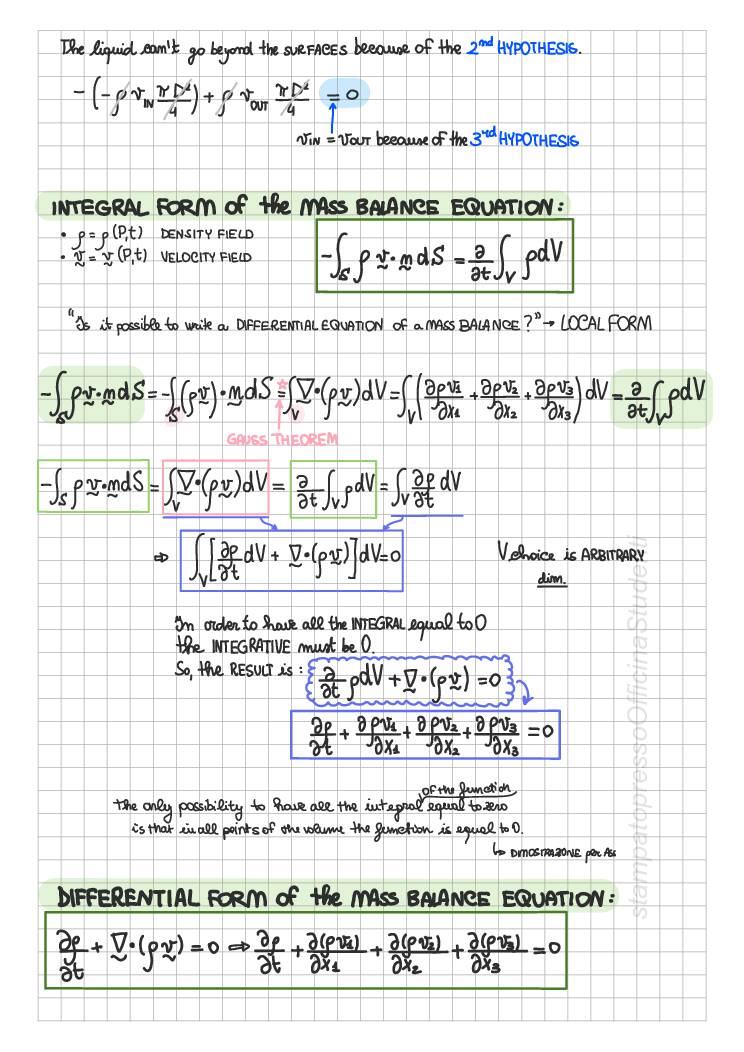 The liquid can't go beyond the SURFACES because of the 2nd HYPOTHESIS.
- (- ρ v_IN πD²/4) + ρ v_OUT πD²/4 = 0
v_IN = v_OUT because of the 3rd HYPOTHESIS
INTEGRAL FORM of the MASS BALANCE EQUATION:
• ρ = ρ(P,t) DENSITY FIELD
• v = v(P,t) VELOCITY FIELD
-∫_S ρ v · n dS = ∂/∂t ∫_V ρ dV
"Is it possible to write a DIFFERENTIAL EQUATION of a MASS BALANCE?" → LOCAL FORM
-∫_S ρ v · n dS = -∫_S (ρ v) · n dS =☆ ∫_V ∇ · (ρ v) dV = ∫_V (∂ρv₁/∂x₁ + ∂ρv₂/∂x₂ + ∂ρv₃/∂x₃) dV = ∂/∂t ∫_V ρ dV
GAUSS THEOREM
-∫_S ρ v · n dS = ∫_V ∇ · (ρ v) dV = ∂/∂t ∫_V ρ dV = ∫_V ∂ρ/∂t dV
⇒ ∫_V [∂ρ/∂t dV + ∇ · (ρ v)] dV = 0
V choice is ARBITRARY
dim.
In order to have all the INTEGRAL equal to 0
the INTEGRATIVE must be 0.
So, the RESULT is: ∂/∂t ρ dV + ∇ · (ρ v) = 0
∂ρ/∂t + ∂ρv₁/∂x₁ + ∂ρv₂/∂x₂ + ∂ρv₃/∂x₃ = 0
of the function
The only possibility to have all the integral equal to zero
is that in all points of the volume the function is equal to 0.
↳ DIMOSTRAZIONE per Ass
DIFFERENTIAL FORM of the MASS BALANCE EQUATION:
∂ρ/∂t + ∇ · (ρ v) = 0 ⇒ ∂ρ/∂t + ∂(ρv₁)/∂x₁ + ∂(ρv₂)/∂x₂ + ∂(ρv₃)/∂x₃ = 0
stampatopressoOfficinaStudenti